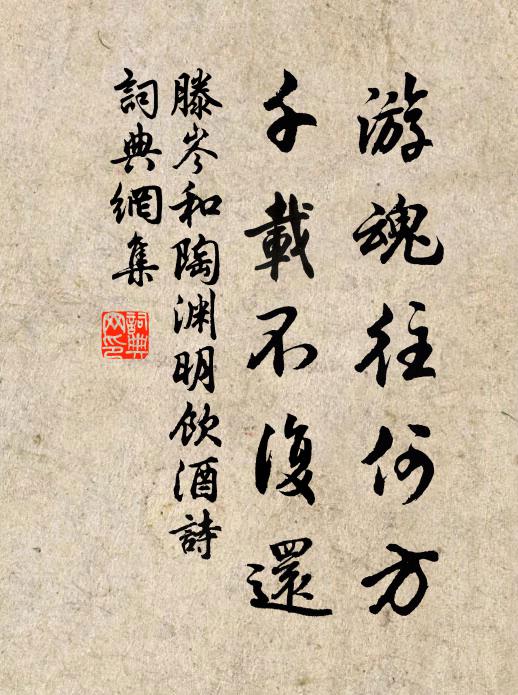 游魂往何方
千載不復還
滕岑和陶渊明飲酒詩
詞典網集
詞典
网印